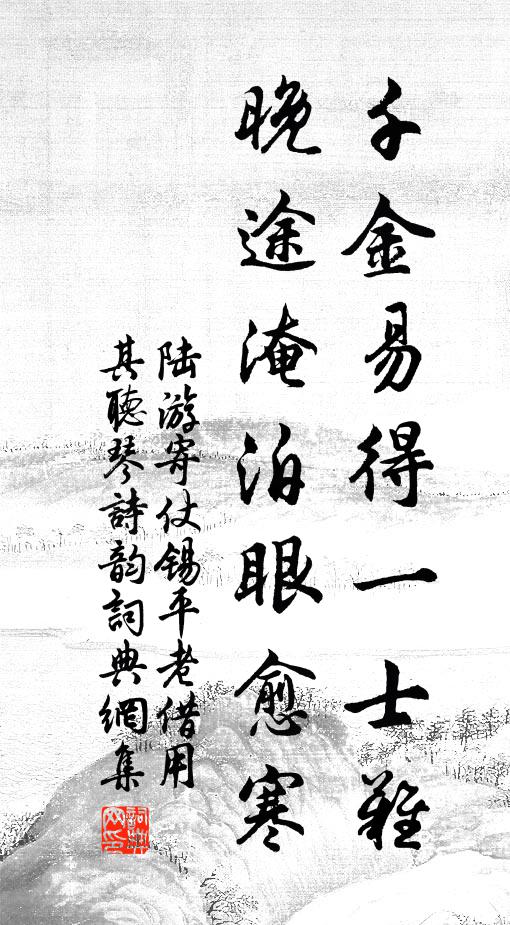 千金易得一士難
晚途淹泊眼愈寒
陆游寄仗锡平老借用
其聽琴詩韵詞典網集